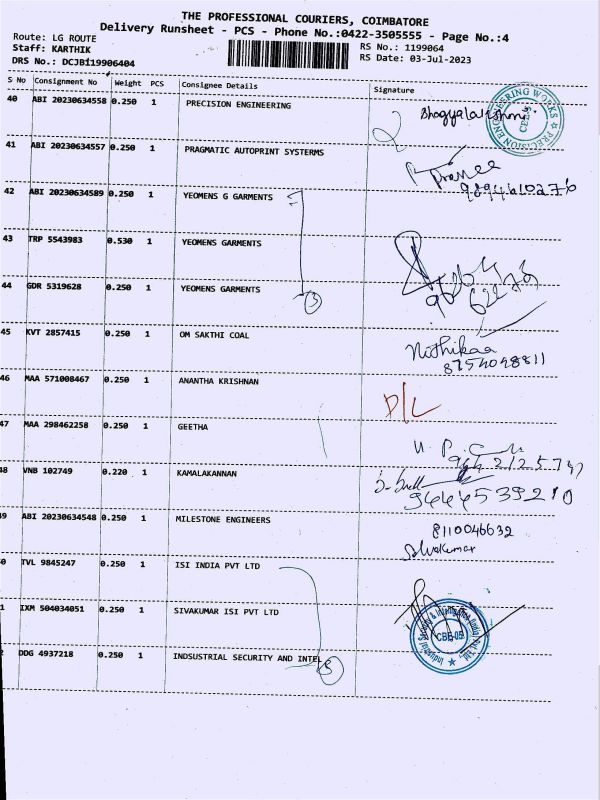 THE PROFESSIONAL COURIERS, COIMBATORE
Delivery Runsheet - PCS - Phone No.:0422-3505555 - Page No.:4
Route: LG ROUTE
RS No.: 1199064
Staff: KARTHIK
RS Date: 03-Jul-2023
DRS No.: DCJB119906404
S No Consignment No Weight PCS Consignee Details Signature
40 ABI 20230634558 0.250 1 PRECISION ENGINEERING Bhagyalakshmi
PRECISION ENGINEERING WORKS
41 ABI 20230634557 0.250 1 PRAGMATIC AUTOPRINT SYSTERMS
42 ABI 20230634589 0.250 1 YEOMENS G GARMENTS
43 TRP 5543983 0.530 1 YEOMENS GARMENTS
44 GDR 5319628 0.250 1 YEOMENS GARMENTS
3
45 KVT 2857415 0.250 1 OM SAKTHI COAL Nithikaa
8754098811
46 MAA 571008467 0.250 1 ANANTHA KRISHNAN D/L
47 MAA 298462258 0.250 1 GEETHA
48 VNB 102749 0.220 1 KAMALAKANNAN
9444539210
49 ABI 20230634548 0.250 1 MILESTONE ENGINEERS 8110046632
Sivakumar
0 TVL 9845247 0.250 1 ISI INDIA PVT LTD
1 IXM 504034051 0.250 1 SIVAKUMAR ISI PVT LTD
CBE-05
2 DDG 4937218 0.250 1 INDSUSTRIAL SECURITY AND INTEL
3